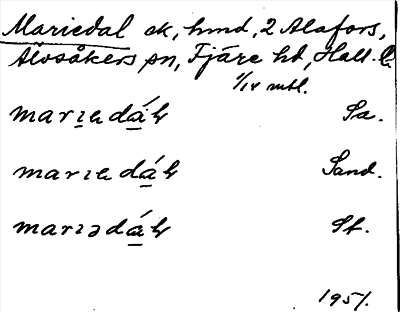 Mariedal ek, hmd, 2 Alafors,
Älvsåkers sn, Fjäre hd, Hall. l.
1/14 mtl.
marıɐdáɫ Sa.
marıɐdáɫ Sand.
marıədáɫ St.
1951.